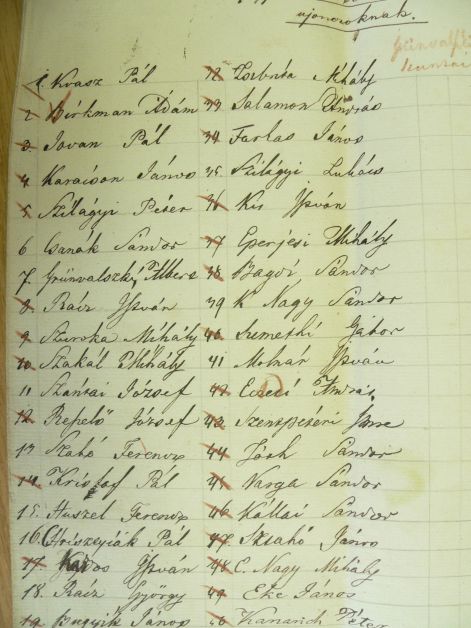 ujonczoknak.
1. Krasz Pál
2. Birkman Ádám
3. Jovan Pál
4. Karacson János
5. Szilágyi Péter
6 Csanák Sandor
7. Grünvalszky Albert
8. Rácz István
9. Szurska Mihály
10. Szakál Mihály
11 Szántai József
12. Repelő József
13 Szabó Ferencz
14. Kristof Pál
15. Huszel Ferencz
16. Hriszcyiák Pál
17. Kádos István
18. Rácz György
19. János
32. Mihály
33 Salamon András
34 Farkas János
35. Szilágyi Lukács
36 Kis István
37 Eperjesi Mihály
38. Bagdi Sandor
39 K Nagy Sandor
40. Szemethi Gábor
41 Molnár István
42 Ecsedi András
43. Szentpéteri Imre
44 Tóth Sandor
45 Varga Sandor
46 Kállai Sandor
47. Szabó János
48 C. Nagy Mihály
49 Eke János
Péter